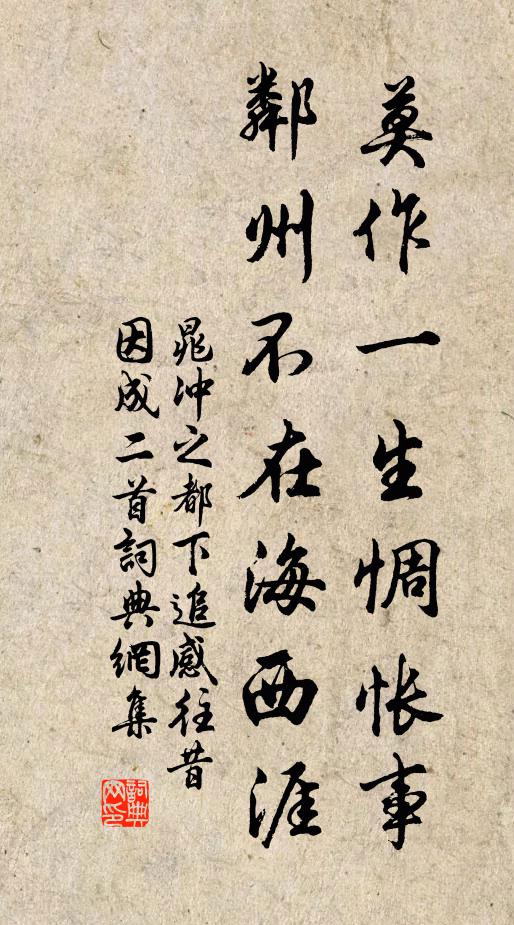 莫作一生惆悵事
鄰州不在海西涯
晁沖之都下追感往昔
因成二首詞典網集
詞典
网印